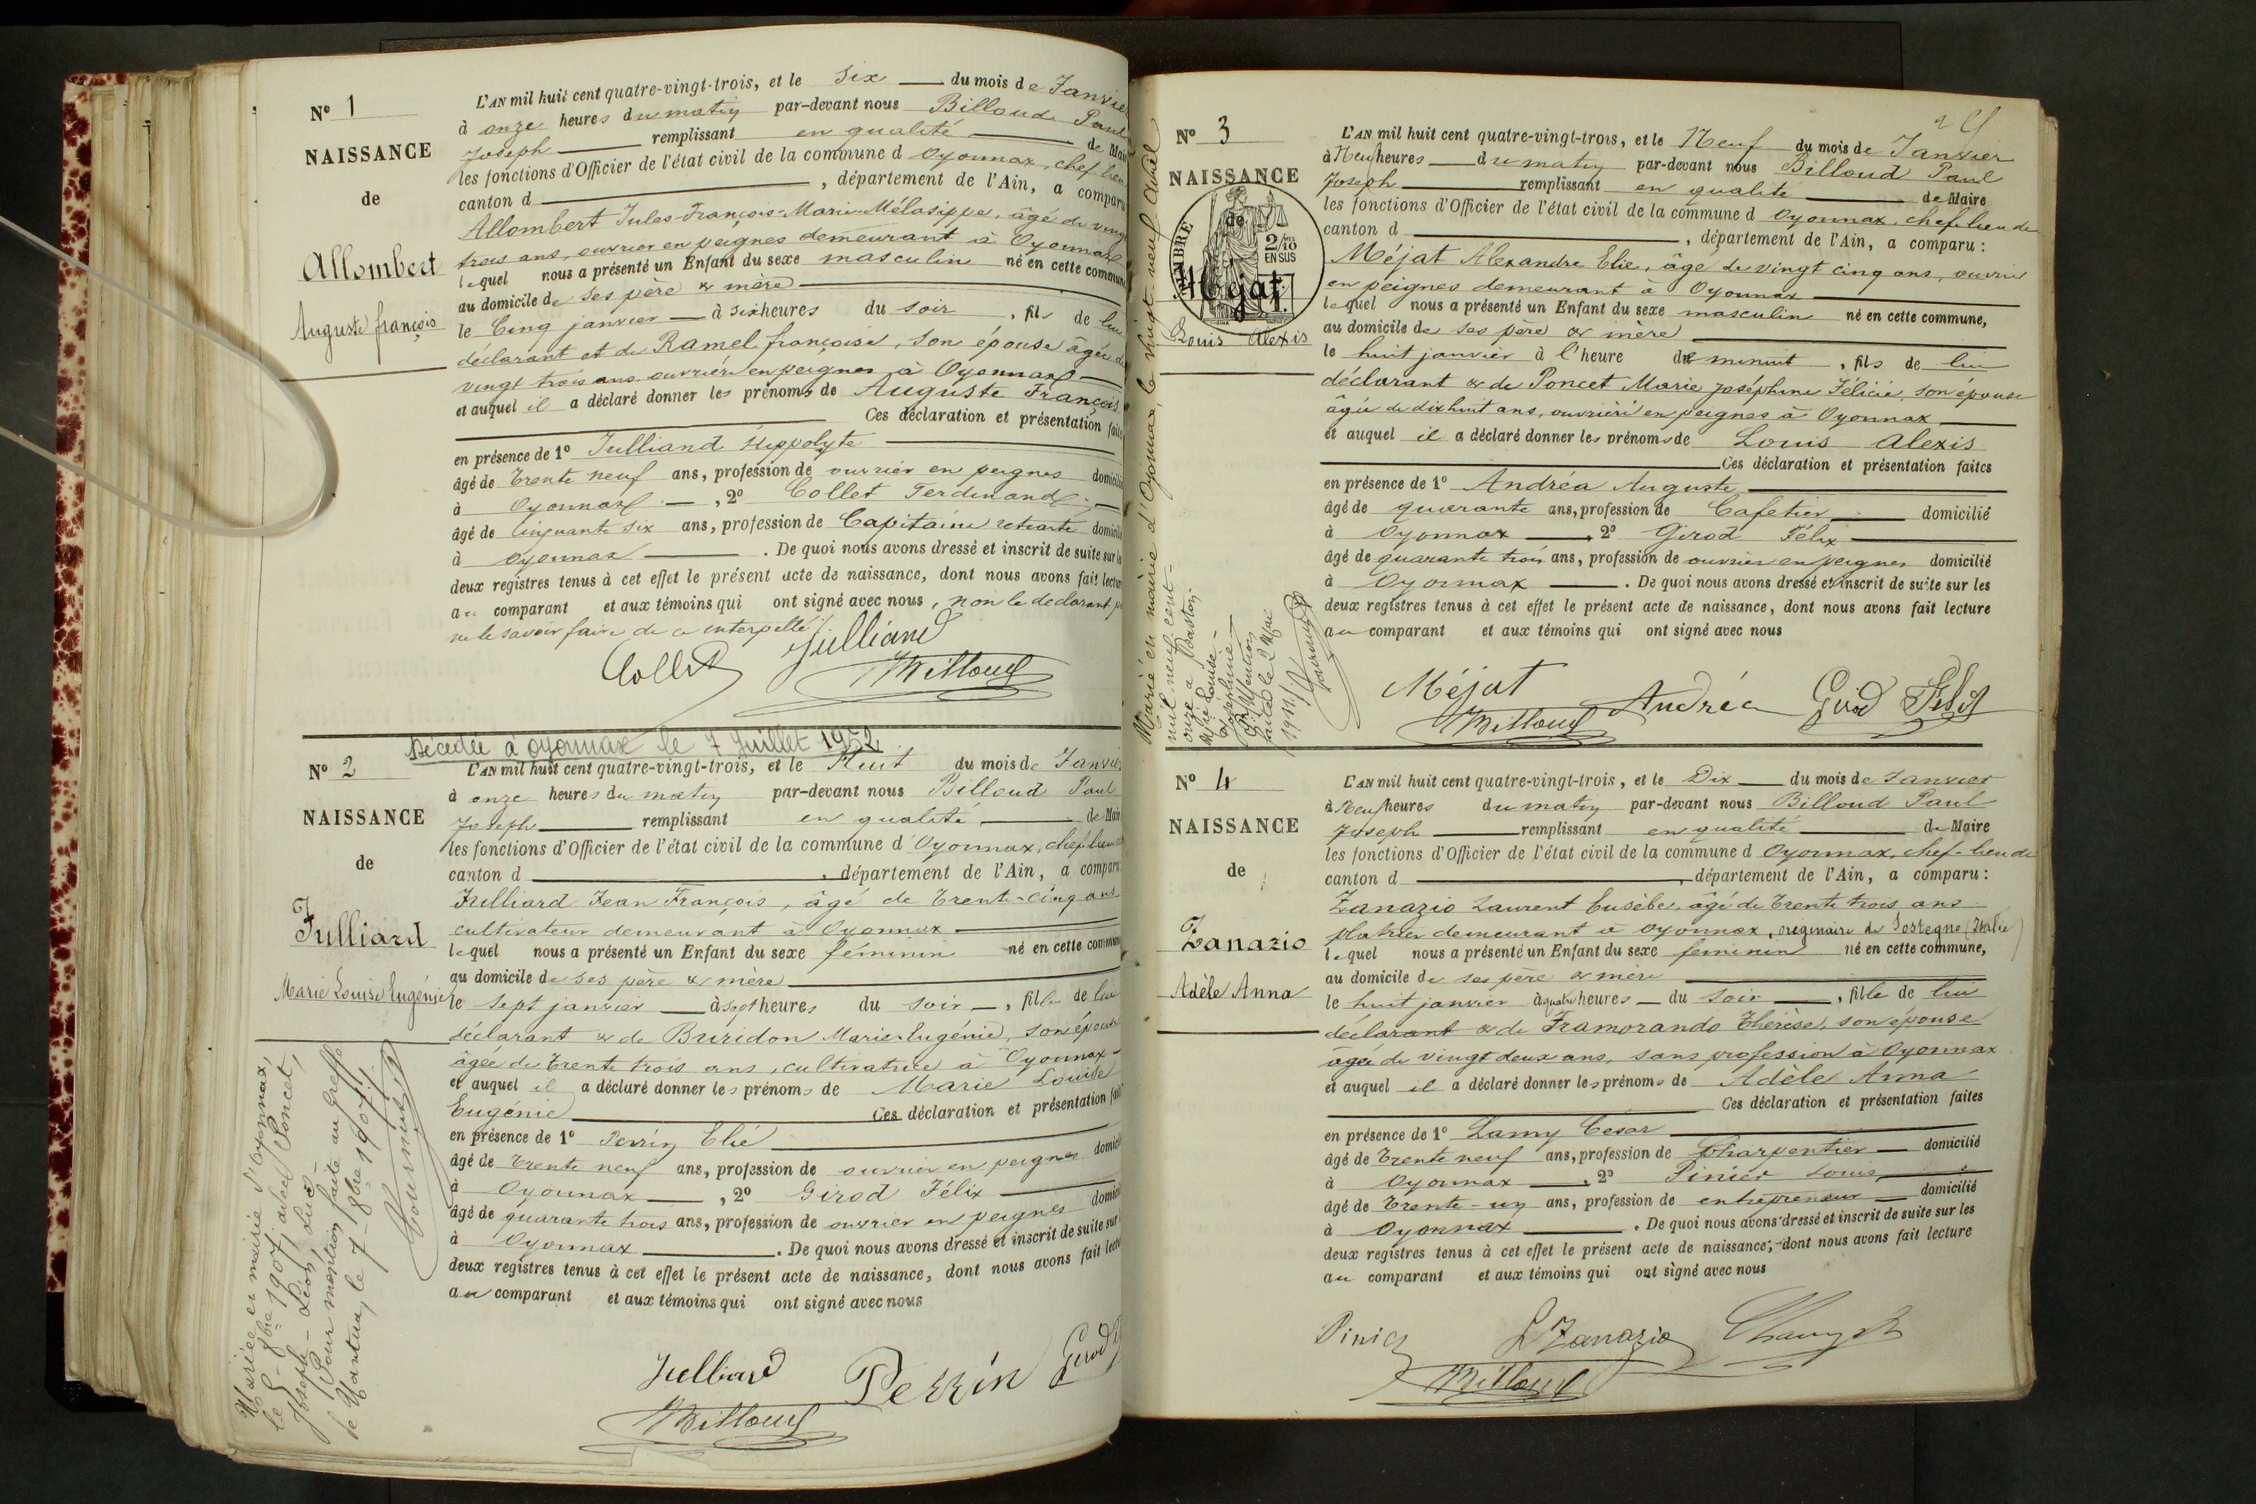 N° 1
NAISSANCE
de
Allombert
Auguste françois
L'AN mil huit cent quatre-vingt-trois, et le Six du mois de Janvier
à onze heures du matin par-devant nous Billoud Paul
Joseph remplissant en qualité de Maire
les fonctions d'Officier de l'état civil de la commune d Oyonnax, chef-lieu
canton d , département de l'Ain, a comparu
Allombert Jules-François-Marie-Mélasippe, âgé de vingt
trois ans, ouvrier en peignes demeurant à Oyonnax
lequel nous a présenté un Enfant du sexe masculin né en cette commune
au domicile de ses père & mère
le Cinq janvier à six heures du soir, fils de lui
déclarant et de Ramel françoise, son épouse âgée de
vingt trois ans ouvrière en peignes à Oyonnax
et auquel il a déclaré donner les prénoms de Auguste François
Ces déclaration et présentation faites
en présence de 1° Julliand Hippolyte
âgé de trente neuf ans, profession de ouvrier en peignes domicilié
à Oyonnax, 2° Collet Ferdinand
âgé de cinquante six ans, profession de Capitaine retraité domicilié
à Oyonnax. De quoi nous avons dressé et inscrit de suite sur les
deux registres tenus à cet effet le présent acte de naissance, dont nous avons fait lecture
au comparant et aux témoins qui ont signé avec nous, non le déclarant p
ne le savoir faire de ce interpellé
Collet Julliand
Billoud
Décédée à Oyonnax le 7 Juillet 1952
N° 2
NAISSANCE
de
Julliard
Marie Louise Eugénie
L'AN mil huit cent quatre-vingt-trois, et le Huit du mois de Janvier
à onze heures du matin par-devant nous Billoud Paul
Joseph remplissant en qualité de Maire
les fonctions d'Officier de l'état civil de la commune d'Oyonnax, chef-lieu
canton d , département de l'Ain, a comparu
Julliard Jean François, âgé de trente-cinq ans
cultivateur demeurant à Oyonnax
lequel nous a présenté un Enfant du sexe féminin né en cette commune
au domicile de ses père & mère
le sept janvier à sept heures du soir, fille de lui
déclarant & de Buridon Marie-Eugénie, son épouse
âgée de trente trois ans, cultivatrice à Oyonnax
et auquel il a déclaré donner les prénoms de Marie Louise
Eugénie Ces déclaration et présentation faites
en présence de 1° Perrin Elié
âgé de trente neuf ans, profession de ouvrier en peignes domicilié
à Oyonnax, 2° Girod Félix
âgé de quarante trois ans, profession de ouvrier en peignes domicilié
à Oyonnax. De quoi nous avons dressé et inscrit de suite sur
deux registres tenus à cet effet le présent acte de naissance, dont nous avons fait lecture
au comparant et aux témoins qui ont signé avec nous
Julliard Perrin Girod
Billoud
Mariée en mairie d'Oyonnax,
le 5 - 8bre 1907, avec Poncet,
Joseph-Léon, Luc
Pour mention faite au greffe
de Nantua, le 7 - 8bre 1907.
N° 3
NAISSANCE
de
TIMBRE
2/10
EN SUS
Méjat
Louis Alexis
L'AN mil huit cent quatre-vingt-trois, et le Neuf du mois de Janvier
à Neuf heures du matin par-devant nous Billoud Paul
Joseph remplissant en qualité de Maire
les fonctions d'Officier de l'état civil de la commune d Oyonnax, chef-lieu de
canton d , département de l'Ain, a comparu :
Méjat Alexandre Elie, âgé de vingt cinq ans, ouvrier
en peignes demeurant à Oyonnax
lequel nous a présenté un Enfant du sexe masculin né en cette commune,
au domicile de ses père & mère
le huit janvier à l'heure de minuit, fils de lui
déclarant & de Poncet Marie Joséphine Félicie, son épouse
âgée de dix huit ans, ouvrière en peignes à Oyonnax
et auquel il a déclaré donner les prénoms de Louis Alexis
Ces déclaration et présentation faites
en présence de 1° Andréa Auguste
âgé de quarante ans, profession de Cafetier domicilié
à Oyonnax, 2° Girod Félix
âgé de quarante trois ans, profession de ouvrier en peignes domicilié
à Oyonnax. De quoi nous avons dressé et inscrit de suite sur les
deux registres tenus à cet effet le présent acte de naissance, dont nous avons fait lecture
au comparant et aux témoins qui ont signé avec nous
Méjat Andréa Girod Félix
Billoud
Marié en mairie d'Oyonnax, le vingt-neuf Avril
mil neuf cent-
onze à
Louise
Joséphine
Mention
faite le 2 Mai
1911
N° 4
NAISSANCE
de
Zanazio
Adèle Anna
L'AN mil huit cent quatre-vingt-trois, et le Dix du mois de Janvier
à Neuf heures du matin par-devant nous Billoud Paul
Joseph remplissant en qualité de Maire
les fonctions d'Officier de l'état civil de la commune d Oyonnax, chef-lieu de
canton d , département de l'Ain, a comparu :
Zanazio Laurent Eusèbe, âgé de trente trois ans
platrier demeurant à Oyonnax, originaire de (Italie)
lequel nous a présenté un Enfant du sexe féminin né en cette commune,
au domicile de ses père & mère
le huit janvier à quatre heures du soir, fille de lui
déclarant & de Framorando Thérèse, son épouse
âgée de vingt deux ans, sans profession à Oyonnax
et auquel il a déclaré donner les prénoms de Adèle Anna
Ces déclaration et présentation faites
en présence de 1° Lamy César
âgé de trente neuf ans, profession de Charpentier domicilié
à Oyonnax, 2° Pinier Louis
âgé de trente-un ans, profession de entrepreneur domicilié
à Oyonnax. De quoi nous avons dressé et inscrit de suite sur les
deux registres tenus à cet effet le présent acte de naissance, dont nous avons fait lecture
au comparant et aux témoins qui ont signé avec nous
Pinier L Zanazio
Billoud